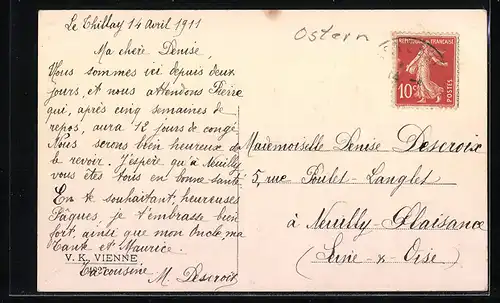 Le Thillay 14 Avril 1911
Ma chère Denise,
Vous sommes ici depuis deux
jours, et nous attendons Pierre
qui, après cinq semaines de
repos, aura 12 jours de congé
Nous serons bien heureux de
le revoir. J'espère qu'à Neuilly
vous êtes tous en bonne santé
En te souhaitant, heureuses
Pâques, je t'embrasse bien
fort, ainsi que mon Oncle, ma
Tante et Maurice.
V. K. VIENNE
Ta cousine
M. Descroix
Ostern
REPUBLIQUE FRANÇAISE
10c
POSTES
Mademoiselle Denise Descroix
5, rue Poulet-Langlet
à Neuilly-Plaisance
(Seine-&-Oise)